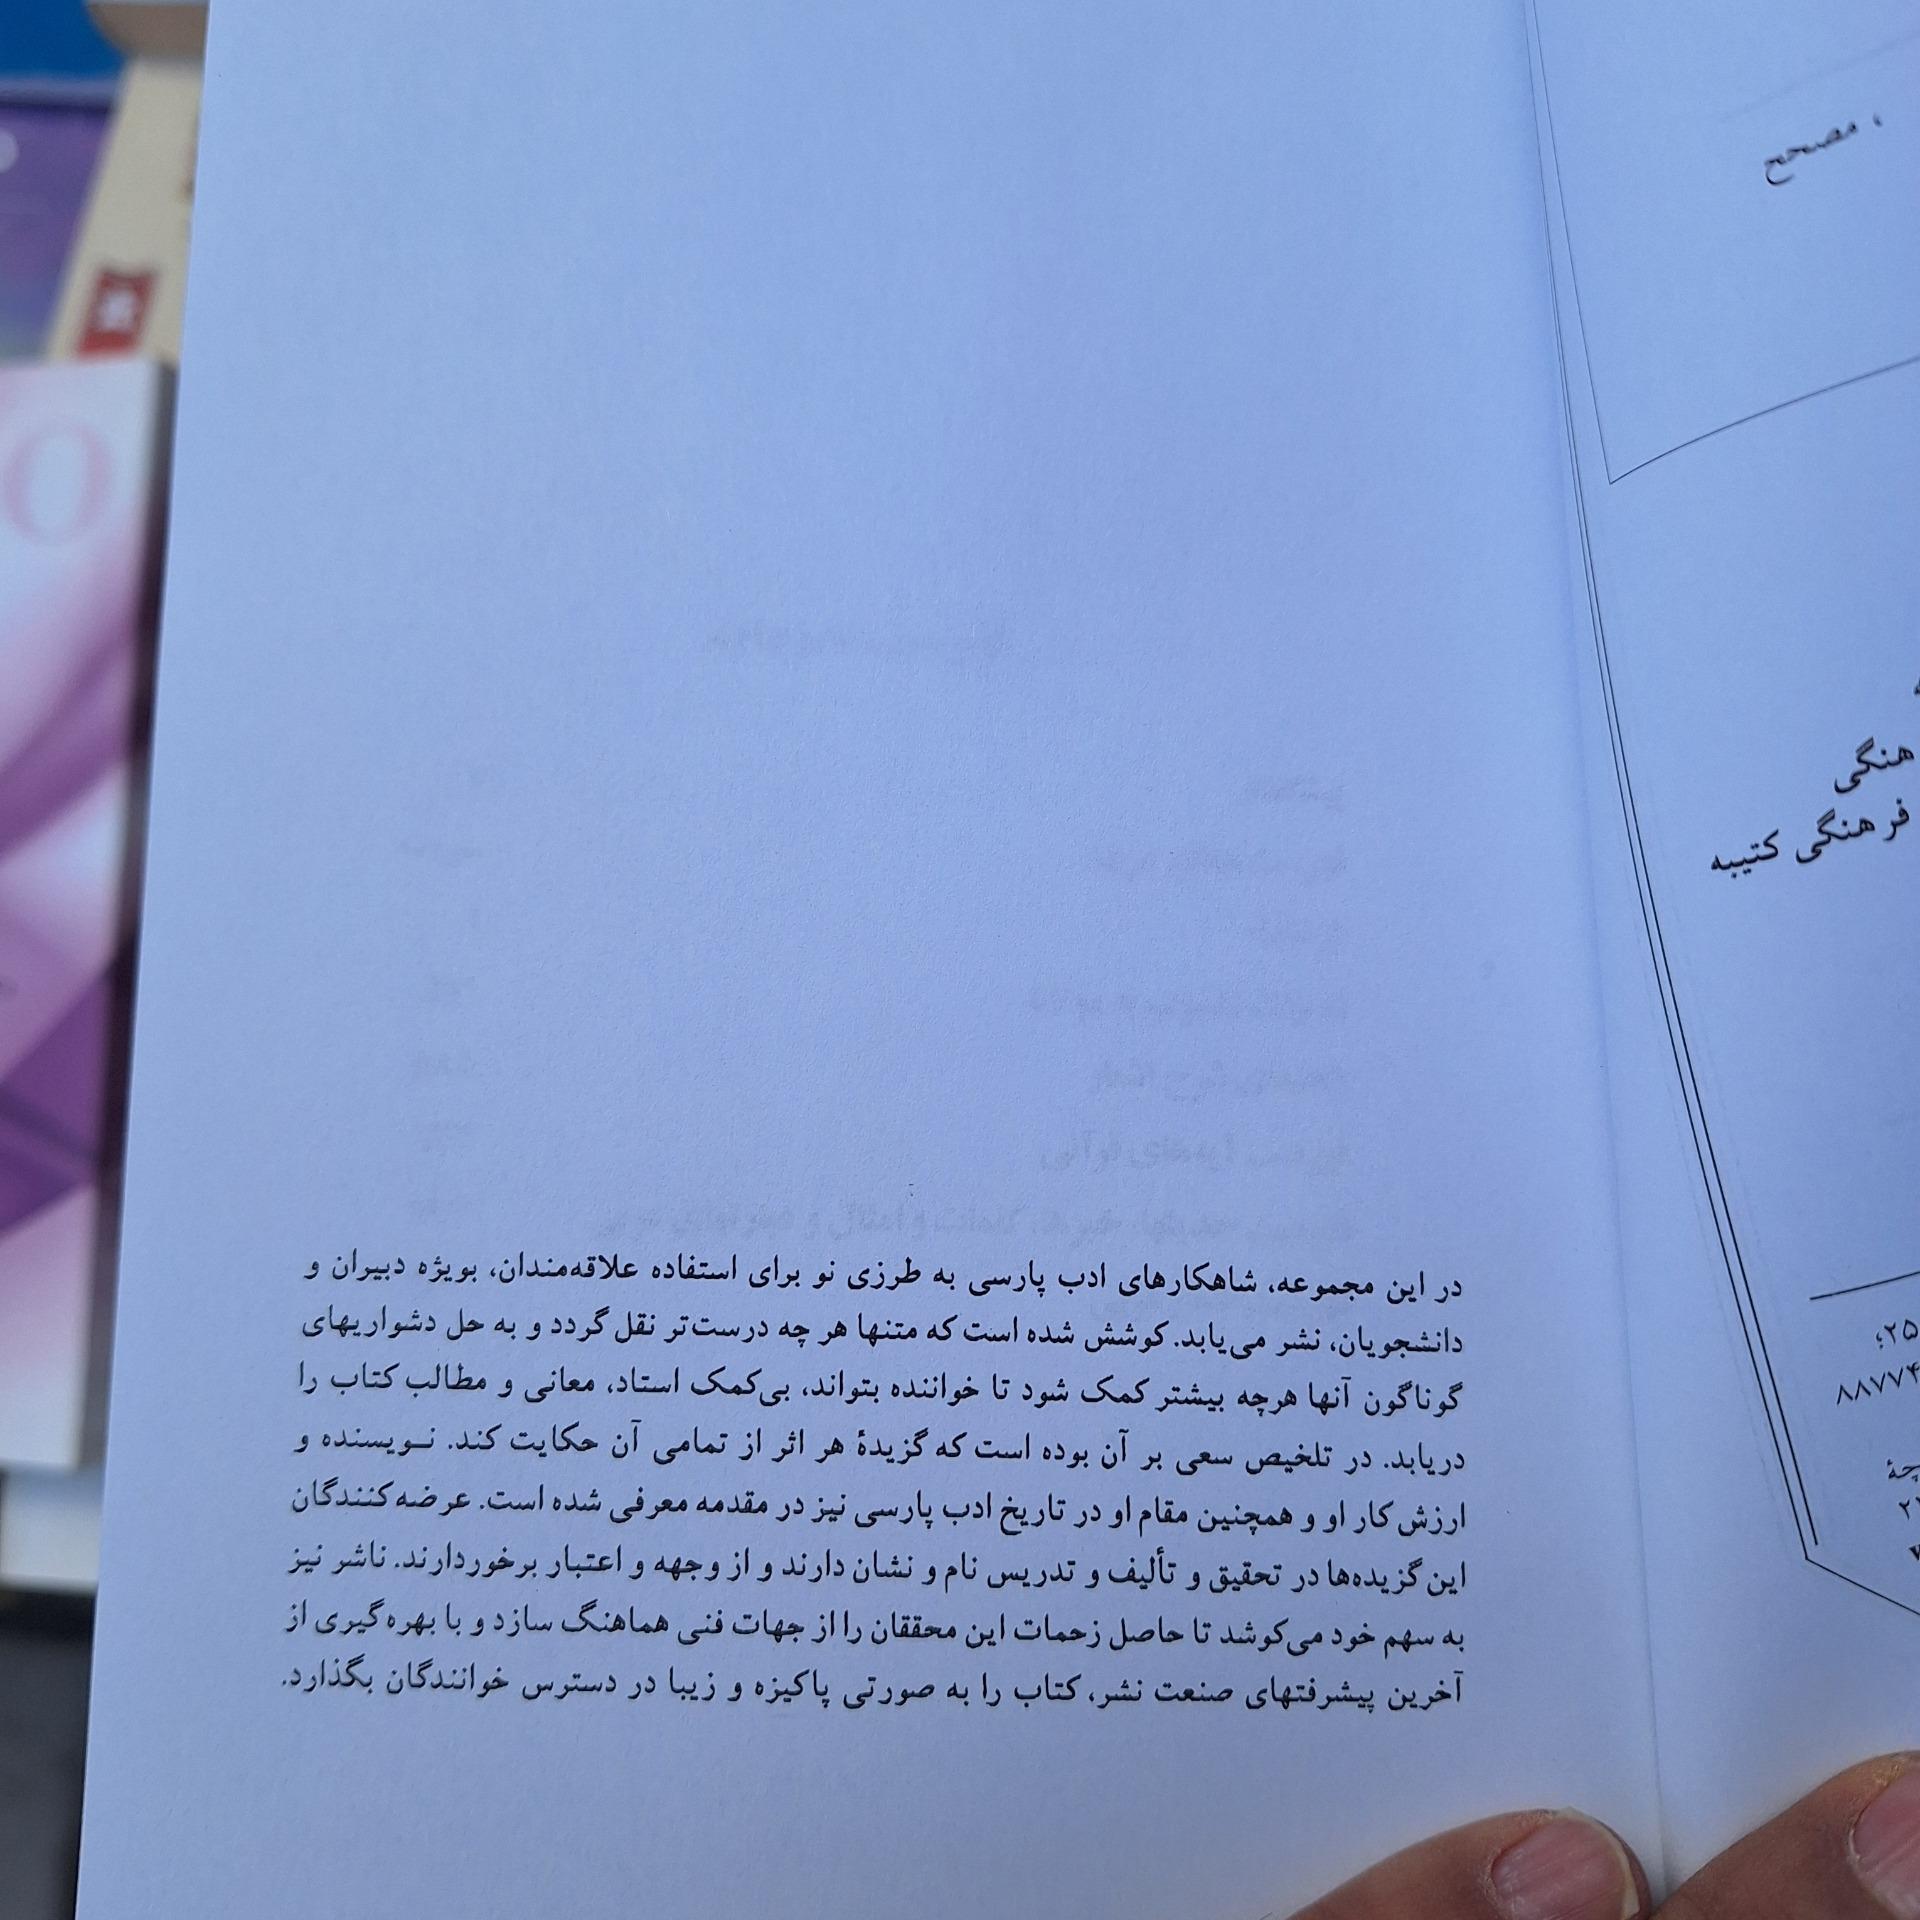 ، مصحح
هنگی
فرهنگی کتیبه
۲۵؛
۸۸۷۷۴
در این مجموعه، شاهکارهای ادب پارسی به طرزی نو برای استفاده علاقه‌مندان، بویژه دبیران و
دانشجویان، نشر می‌یابد. کوشش شده است که متنها هر چه درست‌تر نقل گردد و به حل دشواریهای
گوناگون آنها هرچه بیشتر کمک شود تا خواننده بتواند، بی‌کمک استاد، معانی و مطالب کتاب را
دریابد. در تلخیص سعی بر آن بوده است که گزیدهٔ هر اثر از تمامی آن حکایت کند. نویسنده و
ارزش کار او و همچنین مقام او در تاریخ ادب پارسی نیز در مقدمه معرفی شده است. عرضه‌کنندگان
این گزیده‌ها در تحقیق و تألیف و تدریس نام و نشان دارند و از وجهه و اعتبار برخوردارند. ناشر نیز
به سهم خود می‌کوشد تا حاصل زحمات این محققان را از جهات فنی هماهنگ سازد و با بهره‌گیری از
آخرین پیشرفتهای صنعت نشر، کتاب را به صورتی پاکیزه و زیبا در دسترس خوانندگان بگذارد.